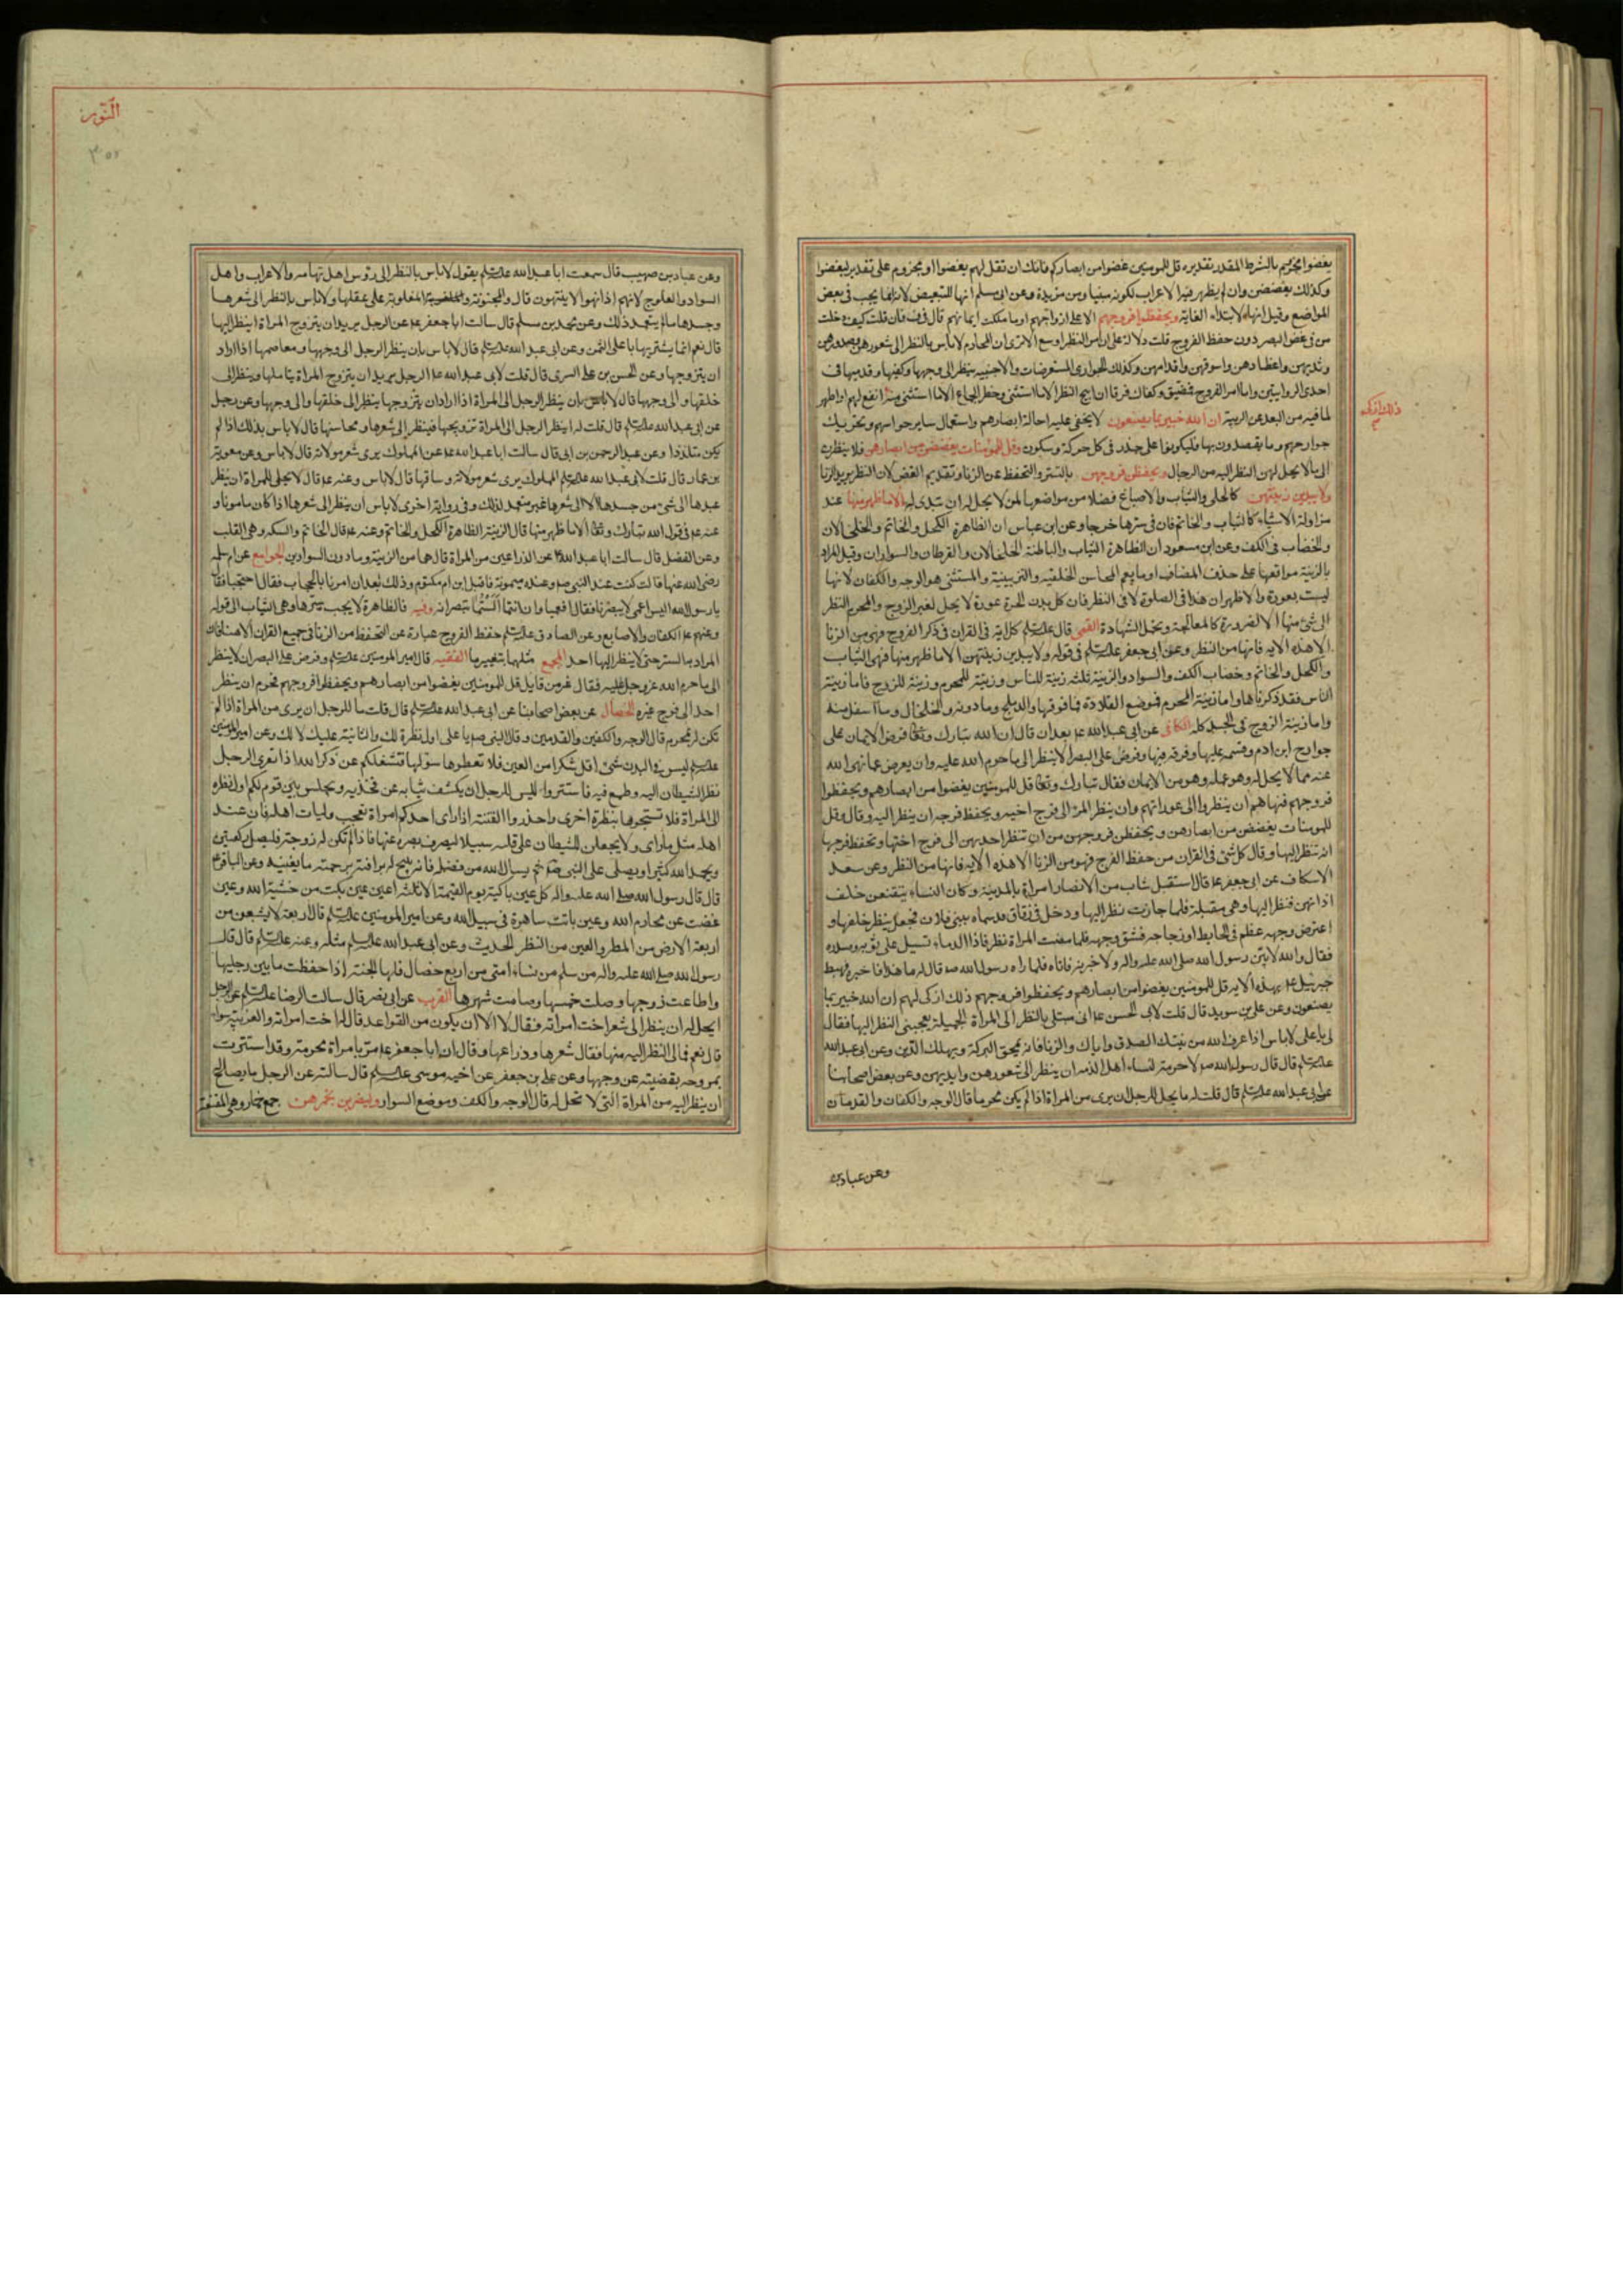 يغضوا مجزوم بالشرط المقدر تقديره قل للمومنين غضوا من ابصاركم فانك ان تقل لهم يغضوا او مجزوم على تقدير ليغضوا
وكذلك يغضضن وان لم يظهر فيه الاعراب لكونه مبنيا ومن مزيدة وعن ابي مسلم انها للتبعيض لانه انما يجب في بعض
المواضع وقيل انها لابتداء الغاية ويحفظوا فروجهم الا على ازواجهم او ما ملكت ايمانهم قال في ف فان قلت كيف دخلت
من في غض البصر دون حفظ الفروج قلت دلالة على ان امر النظر اوسع الا ترى ان المحارم لا باس بالنظر الى شعورهن وصدورهن
وثديهن واعضادهن واسوقهن واقدامهن وكذلك الجواري المستعرضات والاجنبية ينظر الى وجهها وكفيها وقدميها في
احدى الروايتين واما امر الفروج فمضيق وكفاك فرقا ان ابيح النظر الا ما استثنى وحظر الجماع الا ما استثنى منه انفع لهم او اطهر
ذلك ازكى لهم
لما فيه من البعد عن الريبة ان الله خبير بما يصنعون لا يخفى عليه احالة ابصارهم واستعمال ساير حواسهم وتحريك
جوارحهم وما يقصدون بها فليكونوا على حذر في كل حركة وسكون وقل للمؤمنات يغضضن من ابصارهن فلا ينظرن
الى ما لا يحل لهن النظر اليه من الرجال ويحفظن فروجهن بالتستر والتحفظ عن الزنا وتقديم الغض لان النظر بريد الزنا
ولا يبدين زينتهن كالحلي والثياب والاصباغ فضلا من مواضعها لمن لا يحل له ان تبدى له الا ما ظهر منها عند
مزاولة الاشياء كالثياب والخاتم فان في سترها حرجا وعن ابن عباس ان الظاهرة الكحل والخاتم والخلخالان
والخضاب في الكف وعن ابن مسعود ان الظاهرة الثياب والباطنة الخلخالان والقرطان والسواران وقيل المراد
بالزينة مواقعها على حذف المضاف او ما يعم المحاسن الخلقية والتزيينية والمستثنى هو الوجه والكفان لانها
ليست بعورة والاظهر ان هذا في الصلوة لا في النظر فان كل بدن الحرة عورة لا يحل لغير الزوج والمحرم النظر
الى شئ منها الا لضرورة كالمعالجة وتحمل الشهادة القمي قال عليه السلم كل اية في القران في ذكر الفروج فهي من الزنا
الا هذه الاية فانها من النظر وعن ابي جعفر عليه السلم في قوله ولا يبدين زينتهن الا ما ظهر منها فهي الثياب
والكحل والخاتم وخضاب الكف والسوار والزينة ثلثة زينة للناس وزينة للمحرم وزينة للزوج فاما زينة
الناس فقد ذكرناها واما زينة المحرم فموضع القلادة فما فوقها والدملج وما دونه والخلخال وما اسفل منه
واما زينة الزوج فالجسد كله الكافي عن ابي عبد الله ع بعد ان قال ان الله تبارك وتعالى فرض الايمان على
جوارح ابن ادم وقسمه عليها وفرقه فيها وفرض على البصر الا ينظر الى ما حرم الله عليه وان يعرض عما نهى الله
عنه مما لا يحل له وهو عمله وهو من الايمان فقال تبارك وتعالى قل للمومنين يغضوا من ابصارهم ويحفظوا
فروجهم فنهاهم ان ينظروا الى عوراتهم وان ينظر المرء الى فرج اخيه ويحفظ فرجه ان ينظر اليه وقال وقل
للمومنات يغضضن من ابصارهن ويحفظن فروجهن من ان تنظر احديهن الى فرج اختها وتحفظ فرجها
ان تنظر اليها وقال كل شئ في القران من حفظ الفرج فهو من الزنا الا هذه الاية فانها من النظر وعن سعد
الاسكاف عن ابي جعفر ع قال استقبل شاب من الانصار امراة بالمدينة وكان النساء يتقنعن خلف
اذانهن فنظر اليها وهي مقبلة فلما جازت نظر اليها ودخل في زقاق قد سماه ببني فلان فجعل ينظر خلفها و
اعترض وجهه عظم في الحايط او زجاجة فشق وجهه فلما مضت المراة نظر فاذا الدماء تسيل على ثوبه وصدره
فقال والله لاتين رسول الله صلى الله عليه واله ولاخبرنه فاتاه فلما راه رسول الله ص قال له ما هذا فاخبره فهبط
جبرئيل ع بهذه الاية قل للمومنين يغضوا من ابصارهم ويحفظوا فروجهم ذلك ازكى لهم ان الله خبير بما
يصنعون وعن علي بن سويد قال قلت لابي الحسن ع اني مبتلى بالنظر الى المراة الجميلة يعجبني النظر اليها فقال
لي يا علي لا باس اذا عرف الله من نيتك الصدق واياك والزنا فانه يمحق البركة ويهلك الدين وعن ابي عبد الله
عليه السلم قال قال رسول الله ص لا حرمة لنساء اهل الذمة ان ينظر الى شعورهن وايديهن وعن بعض اصحابنا
عن ابي عبد الله عليه السلم قال قلت له ما يحل للرجل ان يرى من المراة اذا لم يكن محرما قال الوجه والكفان والقدمان
وعن عباد بن
النور
٣٥٢
وعن عباد بن صهيب قال سمعت ابا عبد الله عليه السلم يقول لا باس بالنظر الى رؤس اهل تهامة والاعراب واهل
السواد والعلوج لانهم اذا نهوا لا ينتهون قال والمجنونة والمغلوبة على عقلها ولا باس بالنظر الى شعرها
وجسدها ما لم يتعمد ذلك وعن محمد بن مسلم قال سالت ابا جعفر ع عن الرجل يريد ان يتزوج المراة اينظر اليها
قال نعم انما يشتريها باغلى الثمن وعن ابي عبد الله عليه السلم قال لا باس بان ينظر الرجل الى وجهها ومعاصمها اذا اراد
ان يتزوجها وعن الحسن بن السري قال قلت لابي عبد الله ع الرجل يريد ان يتزوج المراة يتاملها وينظر الى
خلفها والى وجهها قال لا باس بان ينظر الرجل الى المراة اذا اراد ان يتزوجها ينظر الى خلفها والى وجهها وعن رجل
عن ابي عبد الله عليه السلم قال قلت له اينظر الرجل الى المراة تزويجها فينظر الى شعرها ومحاسنها قال لا باس بذلك اذا لم
يكن متلذذا وعن عبد الرحمن بن ابي قال سالت ابا عبد الله ع عن المملوك يرى شعر مولاته قال لا باس وعن معوية
بن عمار قال قلت لابي عبد الله عليه السلم المملوك يرى شعر مولاته وساقها قال لا باس وعنه ع قال لا يحل للمراة ان ينظر
عبدها الى شئ من جسدها الا الى شعرها غير متعمد لذلك وفي رواية اخرى لا باس ان ينظر الى شعرها اذا كان مامونا و
عنه ع في قول الله تبارك وتعالى الا ما ظهر منها قال الزينة الظاهرة الكحل والخاتم وعنه ع قال الخاتم والمسكة وهي القلب
وعن الفضل قال سالت ابا عبد الله ع عن الذراعين من المراة قال هما من الزينة وما دون السوارين الجوامع عن ام سلمة
رضي الله عنها قالت كنت عند النبي ص وعنده ميمونة فاقبل ابن ام مكتوم وذلك بعد ان امرنا بالحجاب فقال احتجبا فقلنا
يا رسول الله اليس اعمى لا يبصرنا فقال افعمياوان انتما الستما تبصرانه وفيه فالظاهرة لا يجب سترها وهي الثياب الى قوله
وعنهم ع الكفان والاصابع وعن الصادق عليه السلم حفظ الفروج عبارة عن التحفظ من الزنا في جميع القران الا هنا فان
المراد به الستر حتى لا ينظر اليها احد المجمع مثلهما بتغيير ما الفقيه قال امير المومنين عليه السلم وفرض على البصر ان لا ينظر
الى ما حرم الله عز وجل عليه فقال عز من قايل قل للمومنين يغضوا من ابصارهم ويحفظوا فروجهم فحرم ان ينظر
احد الى فرج غيره الخصال عن بعض اصحابنا عن ابي عبد الله عليه السلم قال قلت ما للرجل ان يرى من المراة اذا لم
تكن له بمحرم قال الوجه والكفين والقدمين وقال النبي ص يا علي اول نظرة لك والثانية عليك لا لك وعن امير المومنين
عليه السلم ليس في البدن شئ اقل شكرا من العين فلا تعطوها سؤلها فتشغلكم عن ذكر الله اذا تعرى الرجل
نظر الشيطان اليه وطمع فيه فاستتروا ليس للرجل ان يكشف ثيابه عن فخذيه ويجلس بين قوم لكم اول نظرة
الى المراة فلا تتبعوها بنظرة اخرى واحذروا الفتنة اذا راى احدكم امراة تعجبه فليات اهله فان عند
اهله مثل ما راى ولا يجعلن للشيطان على قلبه سبيلا ليصرف بصره عنها فاذا لم تكن له زوجة فليصل ركعتين
ويحمد الله كثيرا ويصلي على النبي ص ثم يسال الله من فضله فانه يبيح له برافته برحمته ما يغنيه وعن الباقر ع
قال قال رسول الله صلى الله عليه واله كل عين باكية يوم القيمة الا ثلثة اعين عين بكت من خشية الله وعين
غضت عن محارم الله وعين باتت ساهرة في سبيل الله وعن امير المومنين عليه السلم قال اربعة لا يشبعن من
اربعة الارض من المطر والعين من النظر الحديث وعن ابي عبد الله عليه السلم مثله وعنه عليه السلم قال قال
رسول الله صلى الله عليه واله من سلم من نساء امتي من اربع خصال فلها الجنة اذا حفظت ما بين رجليها
واطاعت زوجها وصلت خمسها وصامت شهرها القرب عن ابي نصر قال سالت الرضا عليه السلم عن الرجل
ايحل له ان ينظر الى شعر اخت امراته فقال لا الا ان يكون من القواعد قال اخت امراته والغريبة سواء
قال نعم فما لي النظر اليه منها فقال شعرها وذراعها وقال ان ابا جعفر ع مر بامراة محرمة وقد استترت
بمروحة بقضيبه عن وجهها وعن علي بن جعفر عن اخيه موسى عليه السلم قال سالته عن الرجل ما يصلح
ان ينظر اليه من المراة التي لا تحل له قال الوجه والكف وموضع السوار وليضربن بخمرهن جمع خمار وهي المقنعة